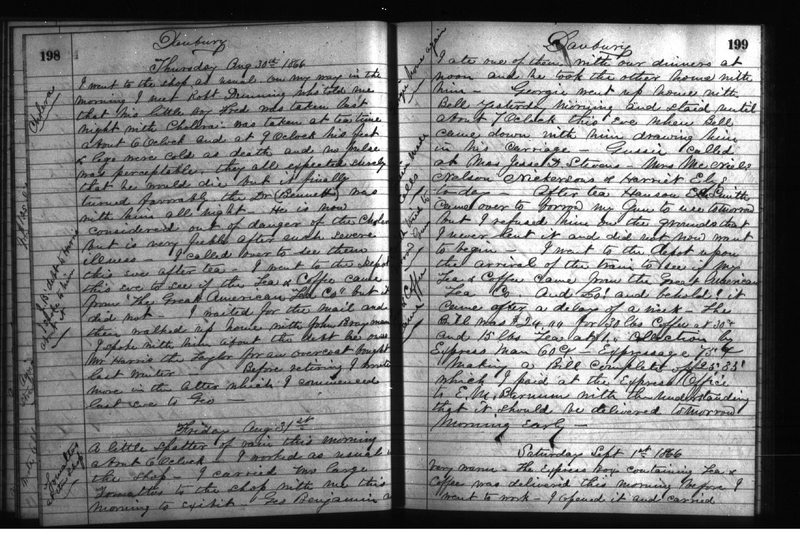 198
Danbury
Thursday Aug 30th 1866
Cholera
I went to the shop as usual on my way in the
morning I met Robt Dunning who told me
that his little boy Fred was taken last
night with Cholera was taken at tea time
about 6 Oclock and at 9 Oclock his feet
& legs were cold as death and no pulse
was perceptable, they all expected surely
that he would die but it finally
turned favorably the Dr (Bennett) was
with him all night He is now
considered out of danger of the Cholera
but is very feeble after such severe
illness - I called over to see them
this eve after tea - I went to the depot
this eve to see if the Tea & Coffee came
from "The Great American Tea Co" but it
did not - I waited for the mail and
then walked up home with John
I spoke with him about the debt he owes
Mr Harris the Taylor for an overcoat bought
last winter - Before retiring I wrote
more in the letter which I commenced
last eve to Geo
Friday Aug 31st
Tomattoes
A little spatter of rain this morning
about 6 Oclock - I worked as usual in
the shop - I carried two large
Tomattoes to the shop with me this
morning to exibit - Geo Benjamin &
199
Danbury
home again
I ate one of them with our dinners at
noon and he took the other home with
him - Georgie went up home with
Bell Yesterday morning and staid until
about 7 Oclock this eve when Bell
came down with him drawing him
in his carriage - Gussie called
at Mrs Jesse D. Stevens - Mrs McNiels
Nelson Nickersons & Harriet Elys
to-day - After tea Hanson Smith
came over to borrow my Gun to use tomorrow
but I refused him on the grounds that
I never let it and did not now want
to begin - I went to the depot upon
the arrival of the train to see if my
Tea & Coffee came from the Great American
Tea Co And Lo! and behold it
came after a delay of a week - The
Bill was $24.00 for 30 lbs Coffee at 30c
and 15 lbs Tea at $1. Collection by
Express man 60c - Expressage 75c
Making a Bill complete of $25.35
which I paid at the Express Office
to E. M. Barnum with the understanding
that it should be delivered tomorrow
Morning Early -
Saturday Sept 1st 1866
Very warm - The Express box containing Tea &
Coffee was delivered this morning before I
went to work - I opened it and carried